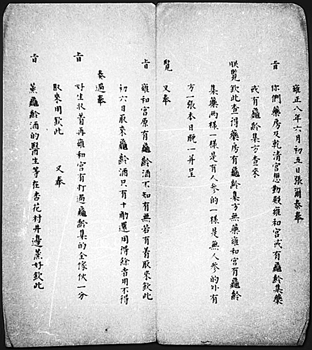 雍正八年六月初五日張爾泰奉
旨你們藥房及乾清宮思勤殿雍和宮或有龜齡集藥
或有龜齡集方查來
欽此查得藥房有龜齡集方無藥雍和宮有龜齡
集藥兩樣一樣是有人參的一樣是無人參的外有
方一張本日晚一并呈
覽 又奉
旨雍和宮原有龜齡酒不知有無若有着取來欽此
初六日取來龜齡酒只有十斤還用得餘者用不得
奏過奉
旨好生收着再雍和宮有打過龜齡集的全傢伙一分
取來用欽此 又奉
旨蒸龜齡酒的醫生等在杏花村井邊蒸好欽此